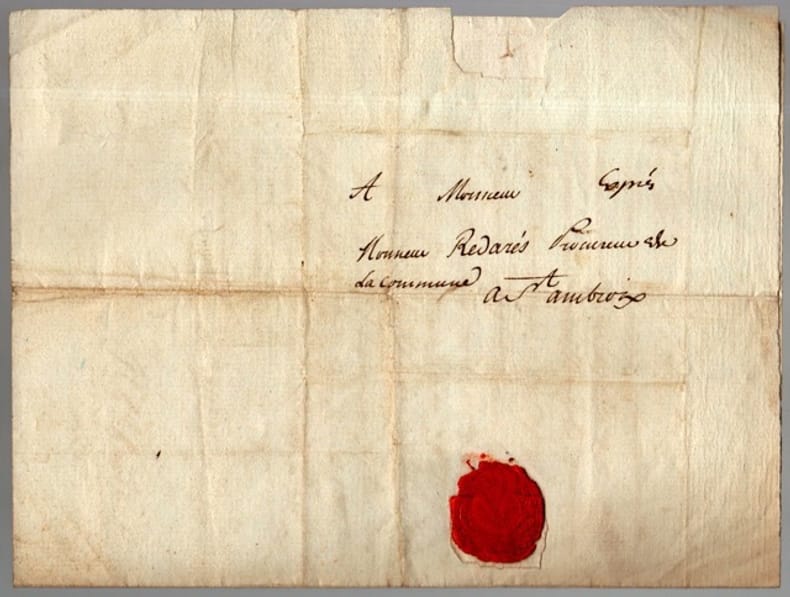 A Monsieur Exprés
Monsieur Redarés Procureur de
La Commune
a St ambroix